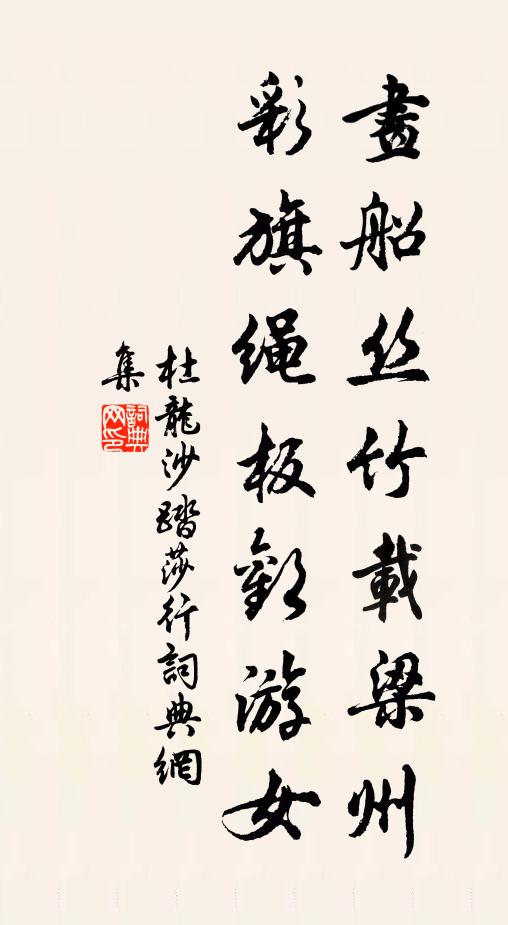 畫船丝竹載梁州
彩旗绳板歡游女
杜龍沙踏莎行詞典網
集
詞典网印